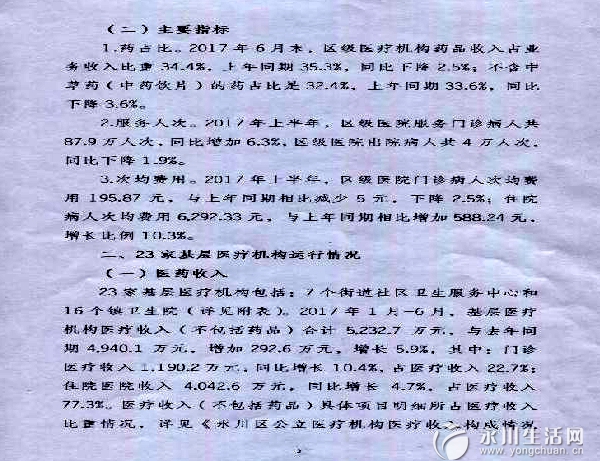 （二）主要指标
1.药占比。2017年6月末，区级医疗机构药品收入占业
务收入比重34.4%，上年同期35.3%，同比下降2.5%；不含中
草药（中药饮片）的药占比是32.4%，上年同期33.6%，同比
下降3.6%。
2.服务人次。2017年上半年，区级医院服务门诊病人共
87.9万人次，同比增加6.3%，区级医院出院病人共4万人次，
同比下降1.9%。
3.次均费用。2017年上半年，区级医院门诊病人次均费
用195.87元，与上年同期相比减少5元，下降2.5%；住院
病人次均费用6,292.33元，与上年同期相比增加588.24元，
增长比例10.3%。
二、23家基层医疗机构运行情况
（一）医药收入
23家基层医疗机构包括：7个街道社区卫生服务中心和
16个镇卫生院（详见附表）。2017年1月-6月，基层医疗
机构医疗收入（不包括药品）合计5,232.7万元，与去年同
期4,940.1万元，增加292.6万元，增长5.9%，其中：门诊
医疗收入1,190.2万元，同比增长10.4%，占医疗收入22.7%；
住院医院收入4,042.6万元，同比增长4.7%，占医疗收入
77.3%。医疗收入（不包括药品）具体项目明细所占医疗收入
比重情况，详见《永川区公立医疗机构医疗收入构成情况
永川生活网
www.yongchuan.cn